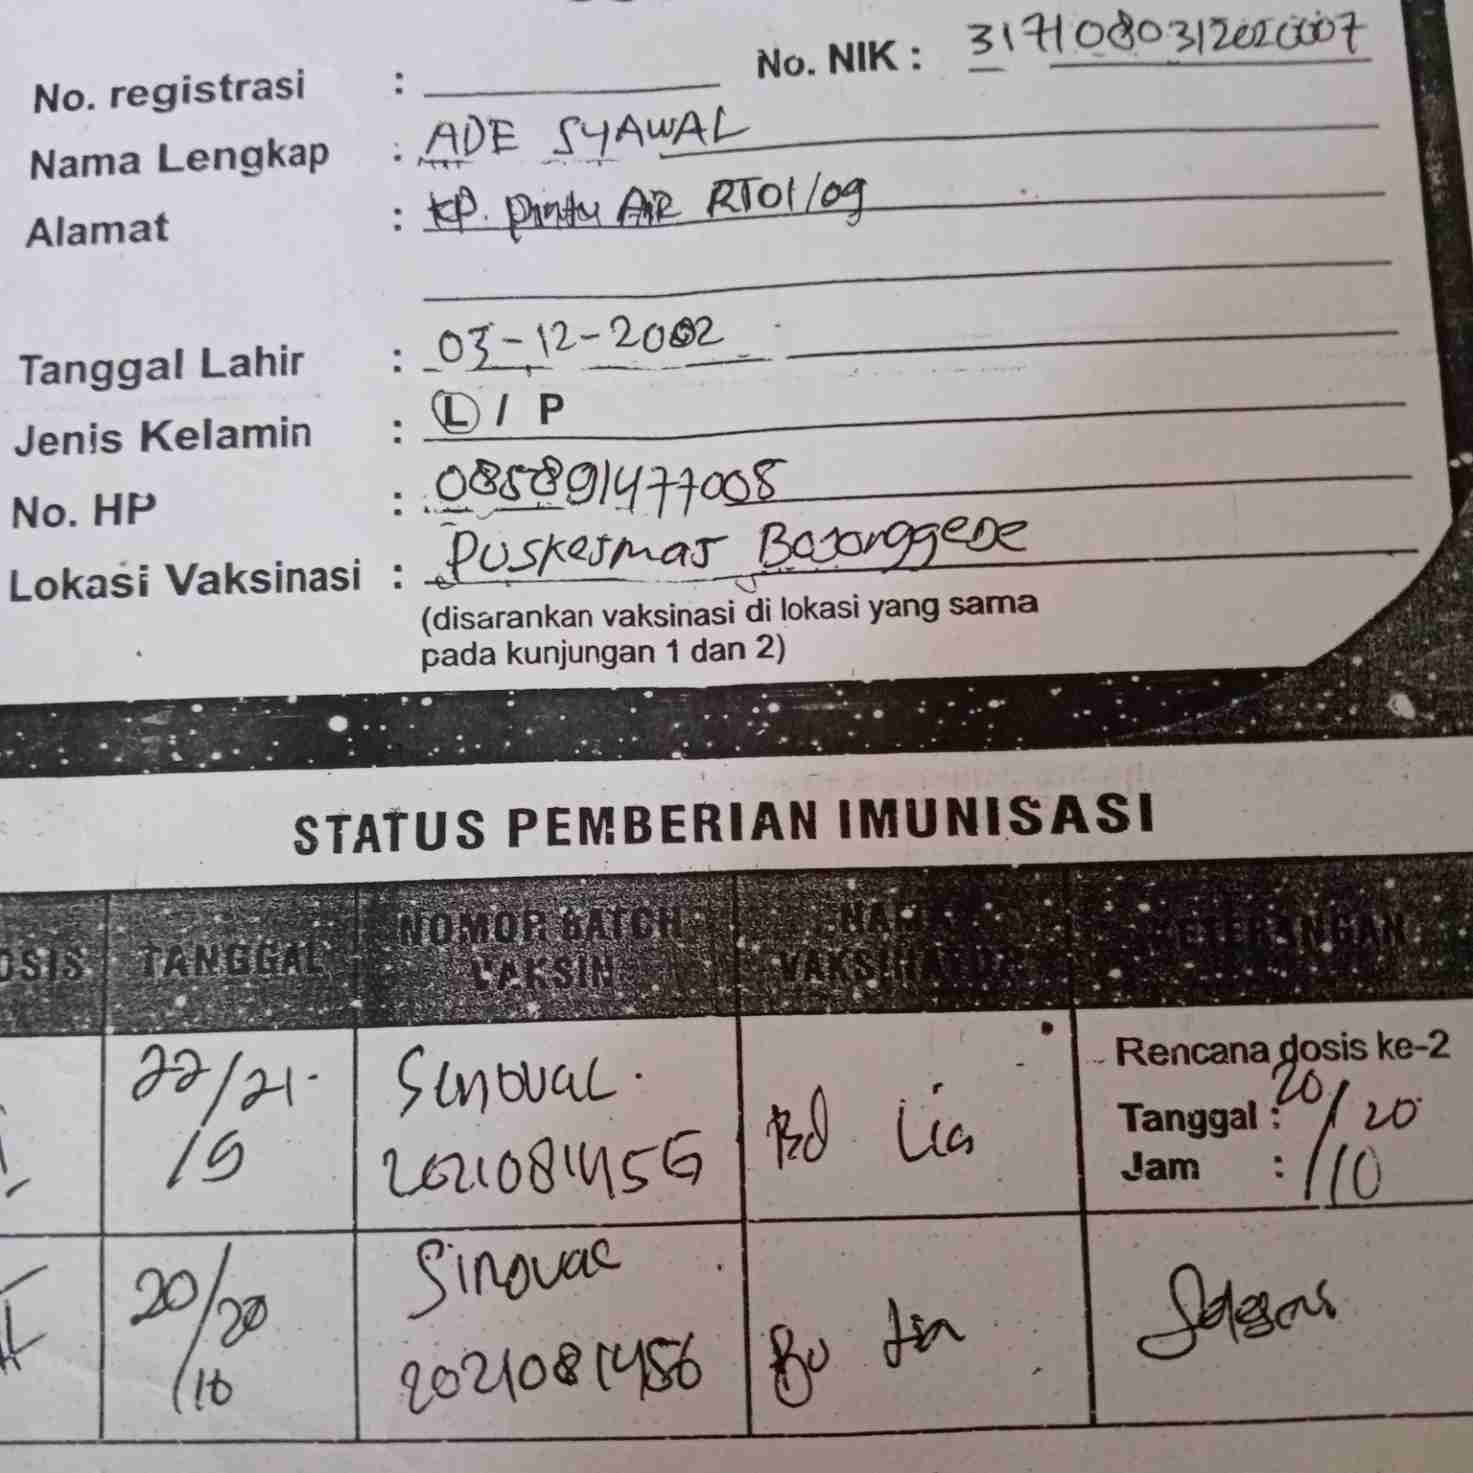 No. registrasi : No. NIK : 3171080312020007
Nama Lengkap : ADE SYAWAL
Alamat : KP. pintu AIR RT01/09
Tanggal Lahir : 03-12-2002
Jenis Kelamin : L / P
No. HP : 085891477008
Lokasi Vaksinasi : Puskesmas Bojonggede
(disarankan vaksinasi di lokasi yang sama
pada kunjungan 1 dan 2)
STATUS PEMBERIAN IMUNISASI
OSIS TANGGAL NOMOR BATCH VAKSIN NAMA VAKSINATOR KETERANGAN
I 22/21 /9 Sinovac 202108145G Bd Lia Rencana dosis ke-2
Tanggal : 20/20
Jam : /10
II 20/20 /10 Sinovac 2021081456 Bu Lia Selesai